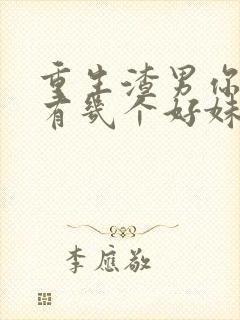 重生渣男你
有几个好妹
李应敬